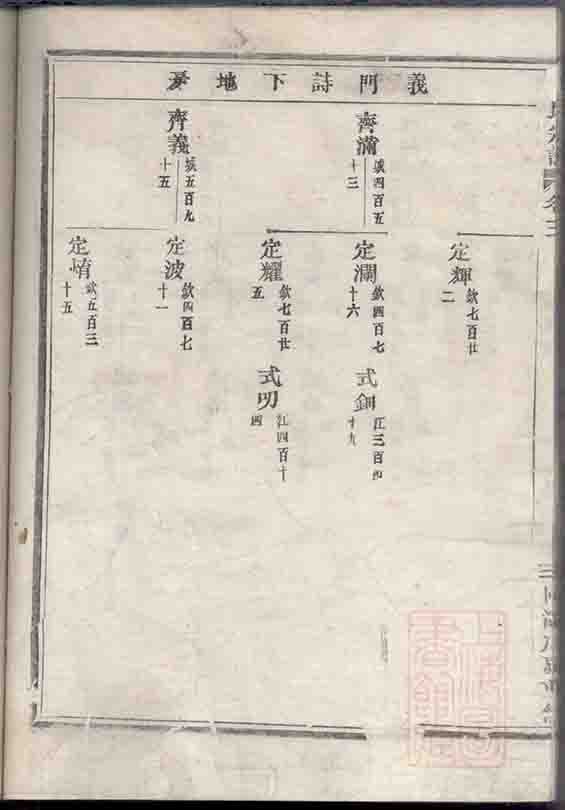 義門詩下地房
齊瀟
城四百五
十三
齊義
城五百九
十五
定輝
欽七百廿
二
定瀾
欽四百七
十六
定耀
欽七百廿
五
定波
欽四百七
十一
定
欽五百三
十五
式銅
江三百四
十九
式叨
江四百十
四
上海圖書館藏